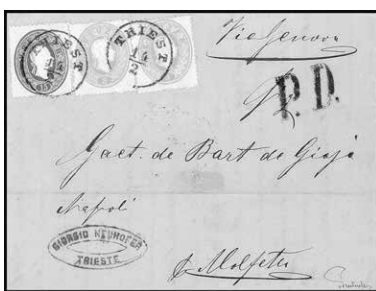 TRIEST
TRIEST
Via Genova
P.D.
Gaet. de Bart. de Gioja
Napoli
GIORGIO NEUHOFER
TRIESTE
p. Molfetta